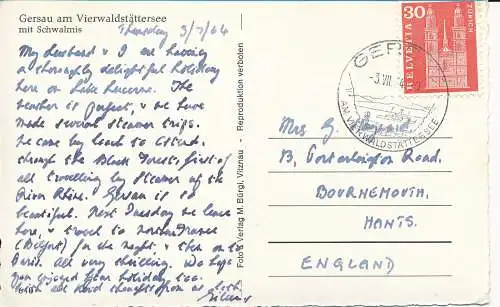 Gersau am Vierwaldstättersee
mit Schwalmis
Thursday 3/7/64
My husband & I are having
a thoroughly delightful holiday
here on Lake Lucerne. The
weather is perfect, & we have
made several steamer trips.
We came by coach to
through the Black Forest, first of
all travelling by steamer up the
River Rhine. Gersau is so
beautiful. Next Tuesday we leave
here, & travel to France
(Belfort) for the night & then on to
Paris. All very thrilling. We hope
you enjoyed your holiday too.
With all kind thoughts from us both
Foto & Verlag M. Bürgi, Vitznau - Reproduktion verboten
30
HELVETIA
ZÜRICH
GERSAU
-3.VII.
AM VIERWALDSTÄTTERSEE
Mrs G.
13, Portarlington Road.
BOURNEMOUTH.
HANTS.
ENGLAND